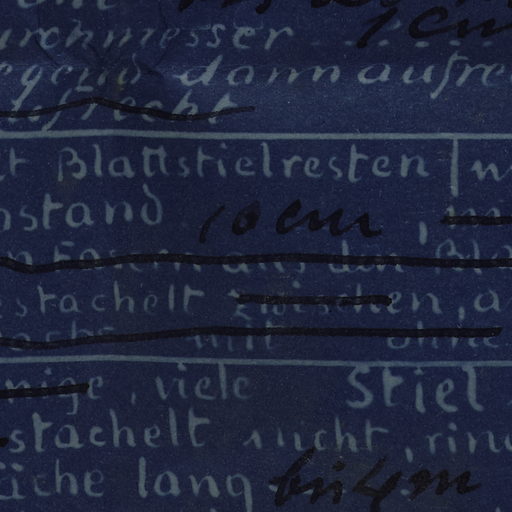 1 cm
urchmesser
egend dann aufre
ufrecht
t Blattstielresten
stand 10 cm
n Fasern aus den Bla
estachelt zwischen, a
mit ohne
nige, viele Stiel
stachelt nicht, rin
äche lang bis 4 m